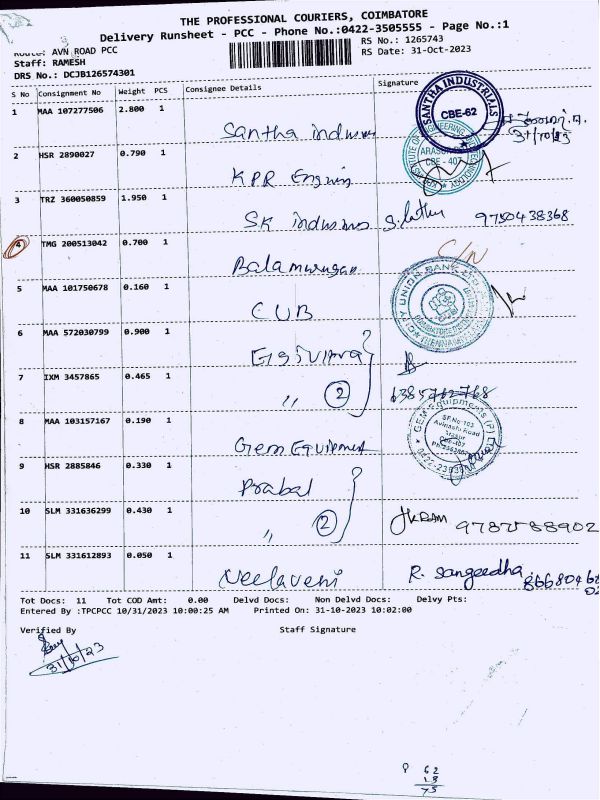 THE PROFESSIONAL COURIERS, COIMBATORE
Delivery Runsheet - PCC - Phone No.:0422-3505555 - Page No.:1
Route: AVN ROAD PCC
RS No.: 1265743
Staff: RAMESH
RS Date: 31-Oct-2023
DRS No.: DCJB126574301
S No Consignment No Weight PCS Consignee Details Signature
1 MAA 107277506 2.800 1
SANTHA INDUSTRIALS
CBE-62
Santha
2 HSR 2890027 0.790 1
CBE - 407
KPR
3 TRZ 360050859 1.950 1
SK 9750438368
4 TMG 200513042 0.700 1
C/N
Balamurugan
5 MAA 101750678 0.160 1
CUB
6 MAA 572030799 0.900 1
7 IXM 3457865 0.465 1
,, 2
6385762768
8 MAA 103157167 0.190 1
GEM Equipments (P) Ltd
SF.No:103
Avinashi Road
Gem Equipment
9 HSR 2885846 0.330 1
Prabal
10 SLM 331636299 0.430 1
,, 2
11 SLM 331612893 0.050 1
Neelaveni R. Sangeedha
Tot Docs: 11 Tot COD Amt: 0.00 Delvd Docs: Non Delvd Docs: Delvy Pts:
Entered By :TPCPCC 10/31/2023 10:00:25 AM Printed On: 31-10-2023 10:02:00
Verified By Staff Signature
31/10/23
62
13
75